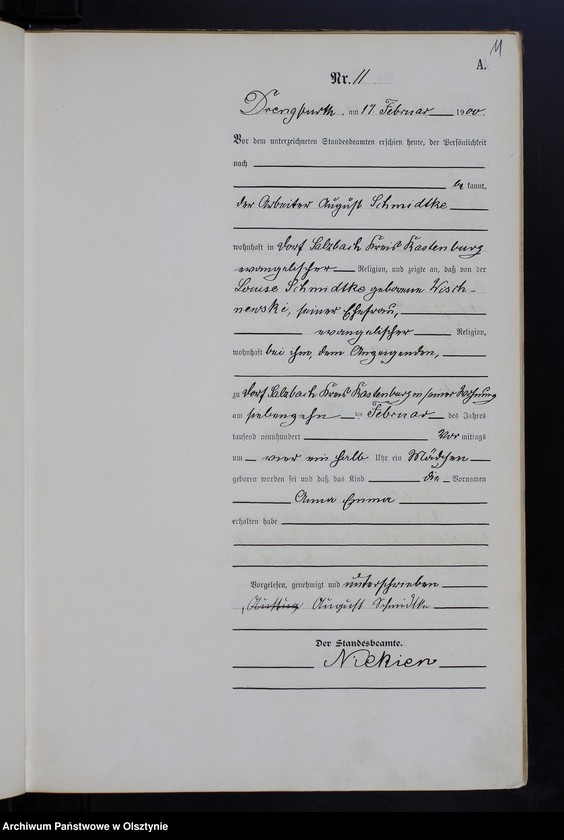 11
A.
Nr. 11
Drengfurth, am 17 Februar 1900.
Vor dem unterzeichneten Standesbeamten erschien heute, der Persönlichkeit
nach
be kannt,
der Arbeiter August Schmidtke
wohnhaft in Dorf Salzbach Kreis Rastenburg
evangelischer Religion, und zeigte an, daß von der
Louise Schmidtke geborene Wisch-
newski, seiner Ehefrau,
evangelischer Religion,
wohnhaft bei ihm, dem Anzeigenden,
zu Dorf Salzbach Kreis Rastenburg in seiner Wohnung
am siebenzehn ten Februar des Jahres
tausend neunhundert Vor mittags
um vier ein halb Uhr ein Mädchen
geboren worden sei und daß das Kind die Vornamen
Anna Emma
erhalten habe
Vorgelesen, genehmigt und unterschrieben
August Schmidtke
Der Standesbeamte.
Niekien
Archiwum Państwowe w Olsztynie